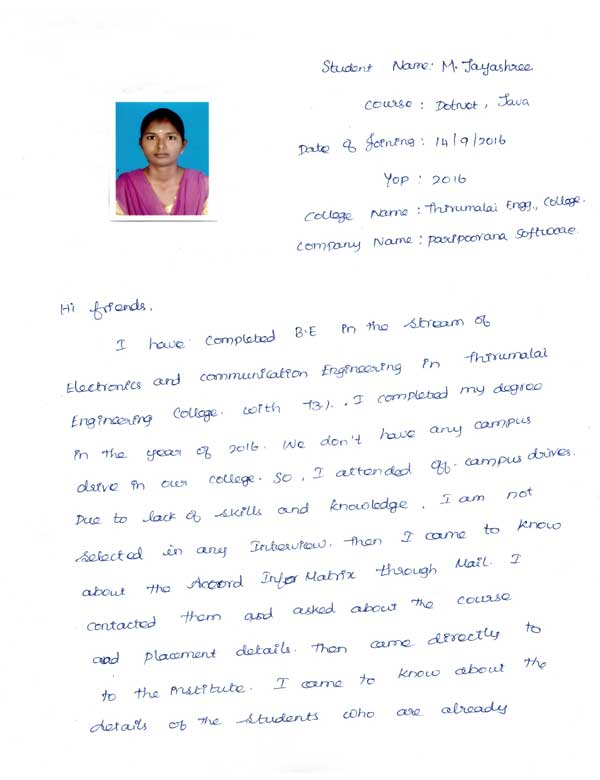 Student Name: M. Jayashree
Course : Dotnet, Java
Date of Joining : 14/9/2016
YOP : 2016
College Name : Thirumalai Engg., College.
Company Name : Paripoorana Software
Hi friends,
I have completed B.E in the stream of
Electronics and communication Engineering in Thirumalai
Engineering College. with 73%. , I completed my degree
in the year of 2016. We don't have any campus
drive in our college. So, I attended off-campus drives.
Due to lack of skills and knowledge , I am not
selected in any Interview. Then I came to know
about the Accord Info Matrix through Mail. I
contacted them and asked about the course
and placement details. Then came directly to
to the Institute. I came to know about the
details of the students who are already